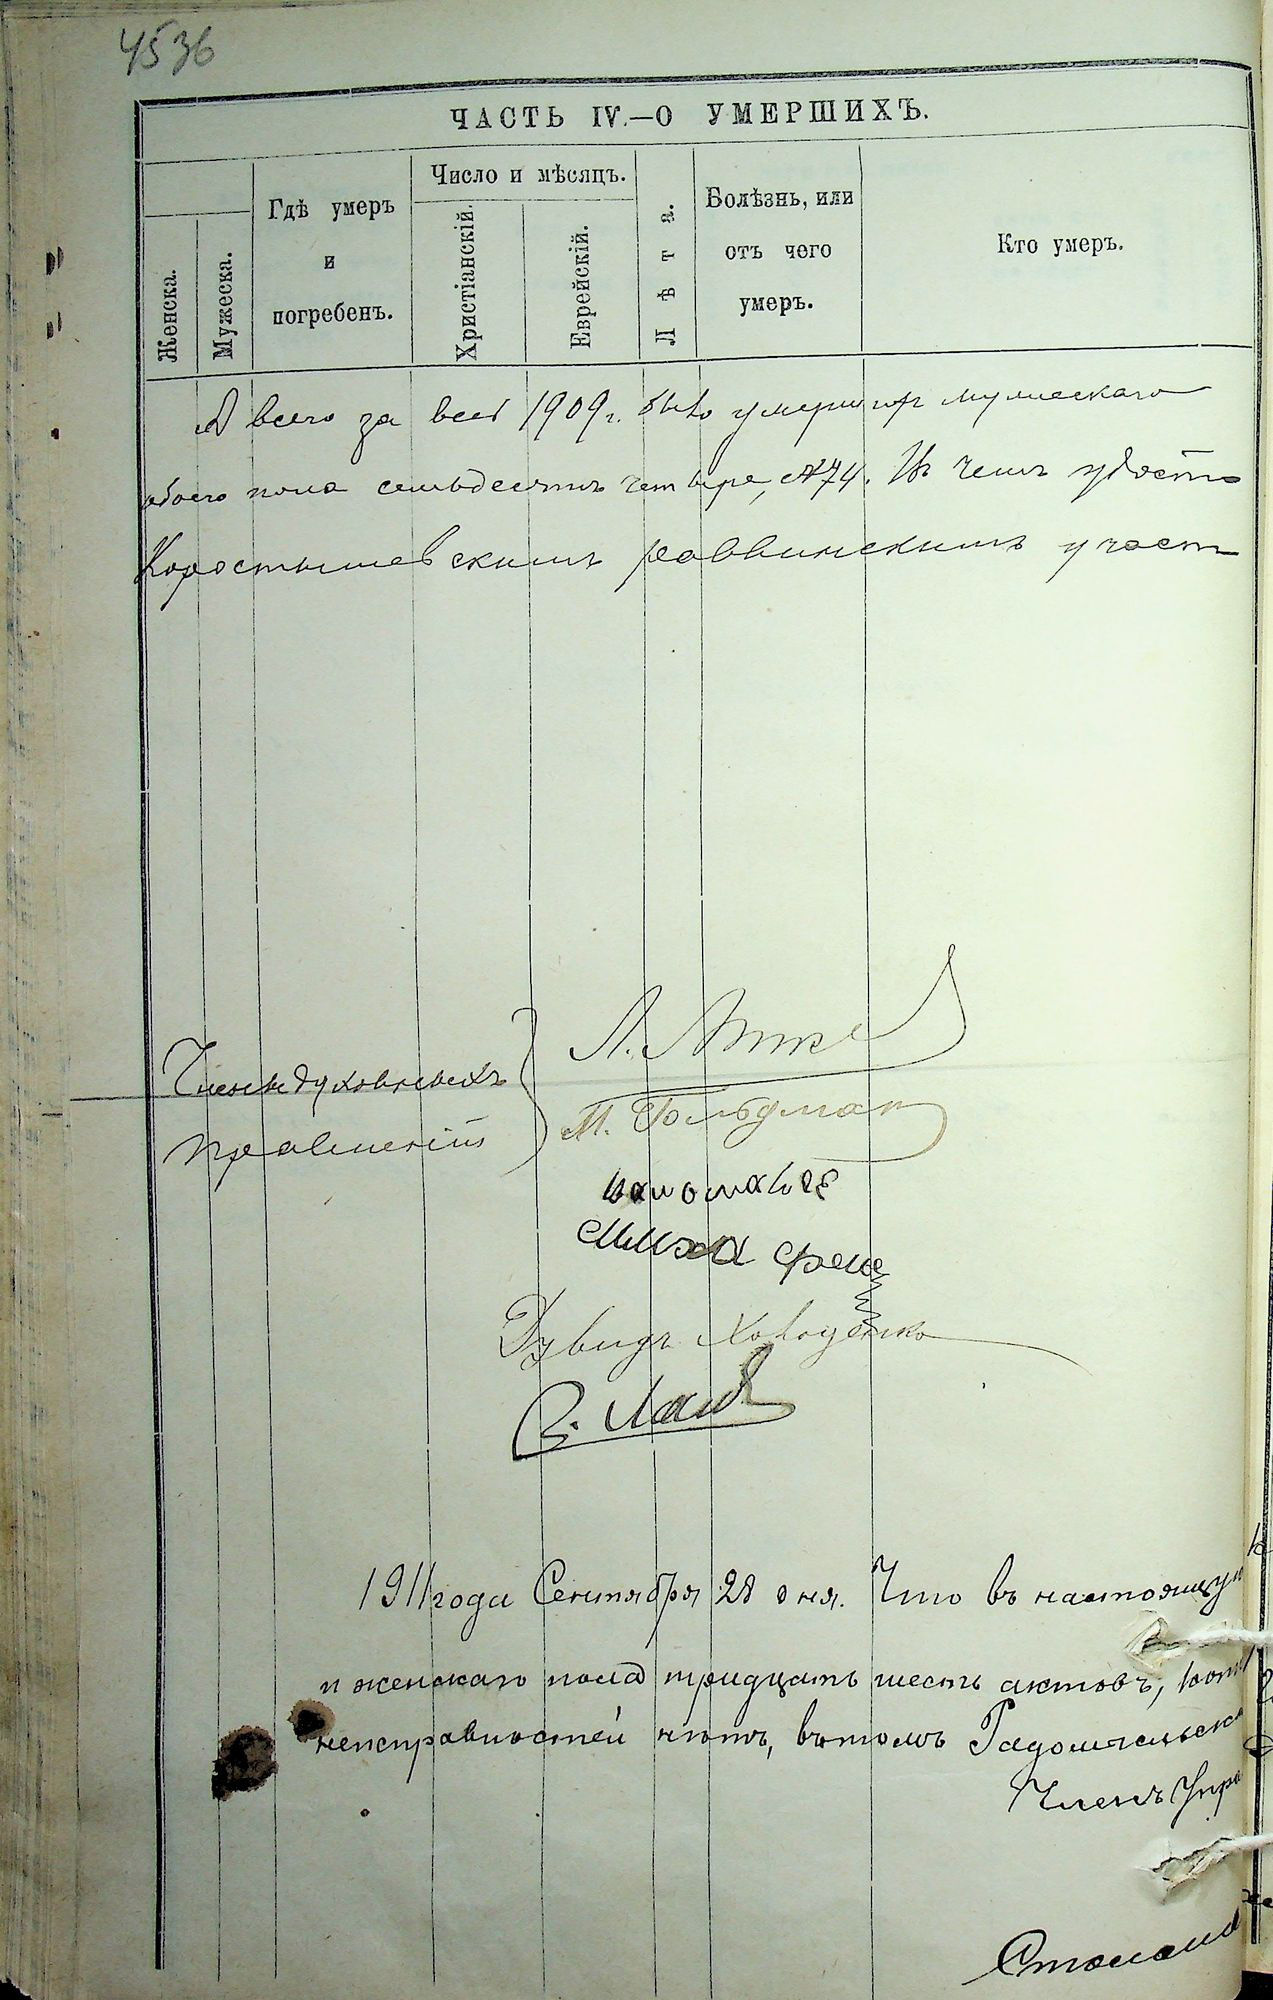 4536
ЧАСТЬ IV.—О УМЕРШИХЪ.
Женска.
Мужеска.
Гдѣ умеръ
и
погребенъ.
Число и мѣсяцъ.
Христіанскій.
Еврейскій.
Лѣта.
Болѣзнь, или
отъ чего
умеръ.
Кто умеръ.
А всего за весь 1909 г. было умерших мужескаго
обоего пола семьдесятъ четыре, №74. Въ чемъ удосто
Коростышевскимъ раввинскимъ участ
Члены духовныхъ
правленій
Л.
М. Гольдман
Дувидъ Ховоденко
1911 года Сентября 28 дня. Что въ настоящую
и женскаго пола тридцать шесть актовъ, кот
неисправностей нѣтъ, въ томъ Радомысльска
Членъ Упра